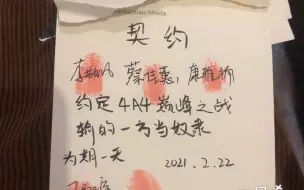 契约
李
蔡佳惠，康雅
约定4A4巅峰之战
输的一方当奴隶
为期一天 2021.2.22